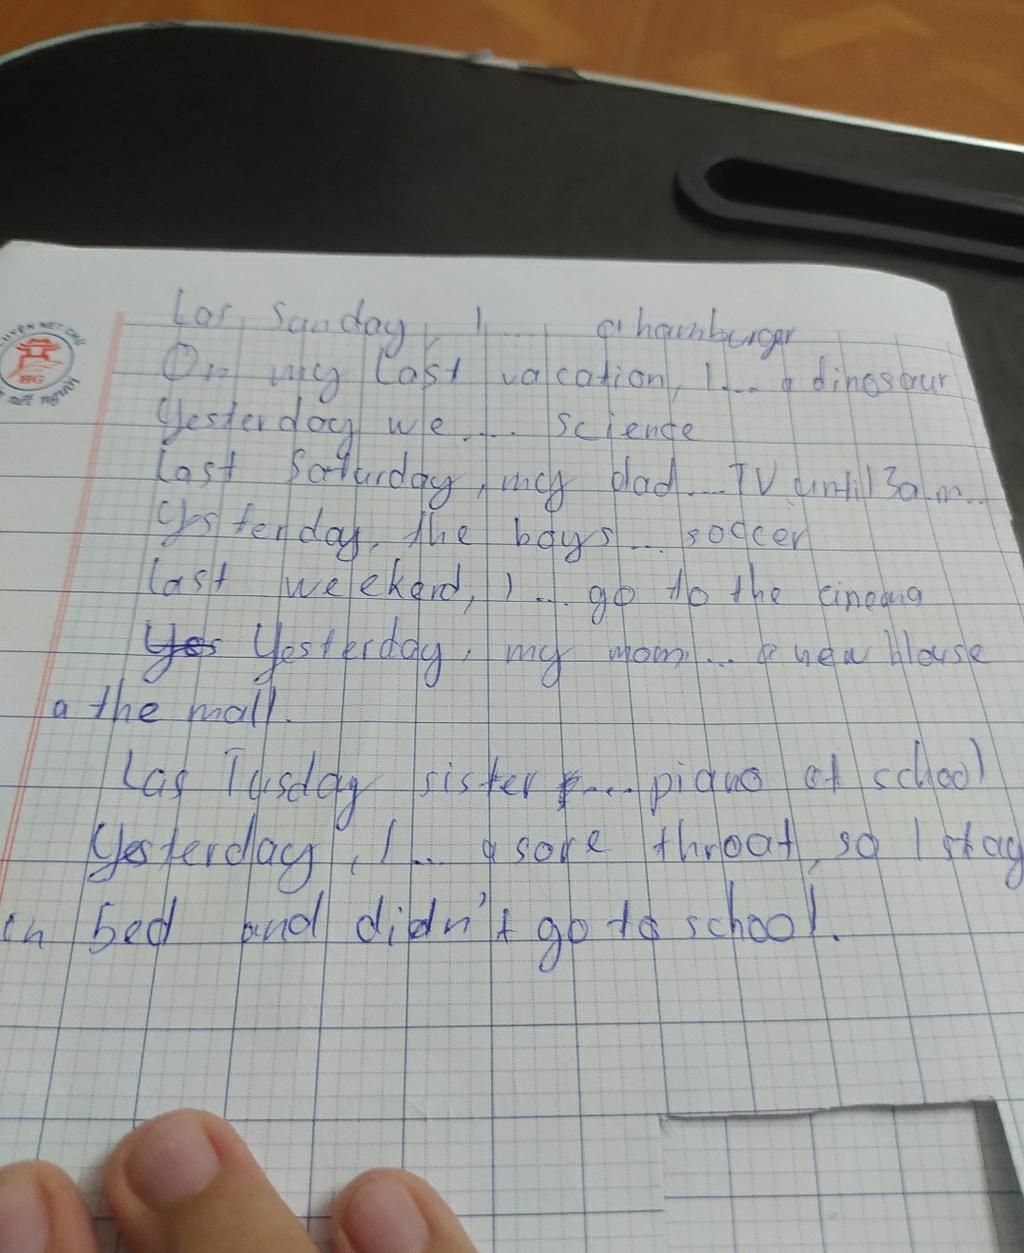 Las Sanday, I ... a hamburger
On my last vacation, I... a dinosaur
Yesterday we .... science
Last Saturday, my dad .... TV until 3a.m...
Yesterday, the boys ... soccer
last weekend, I ... go to the cinema
Yes Yesterday, my mom ... a new blouse
a the mall.
Las Tusday sister .... piano at school
Yesterday, I ... a sore throat, so I stay
in bed and didn't go to school.
BG